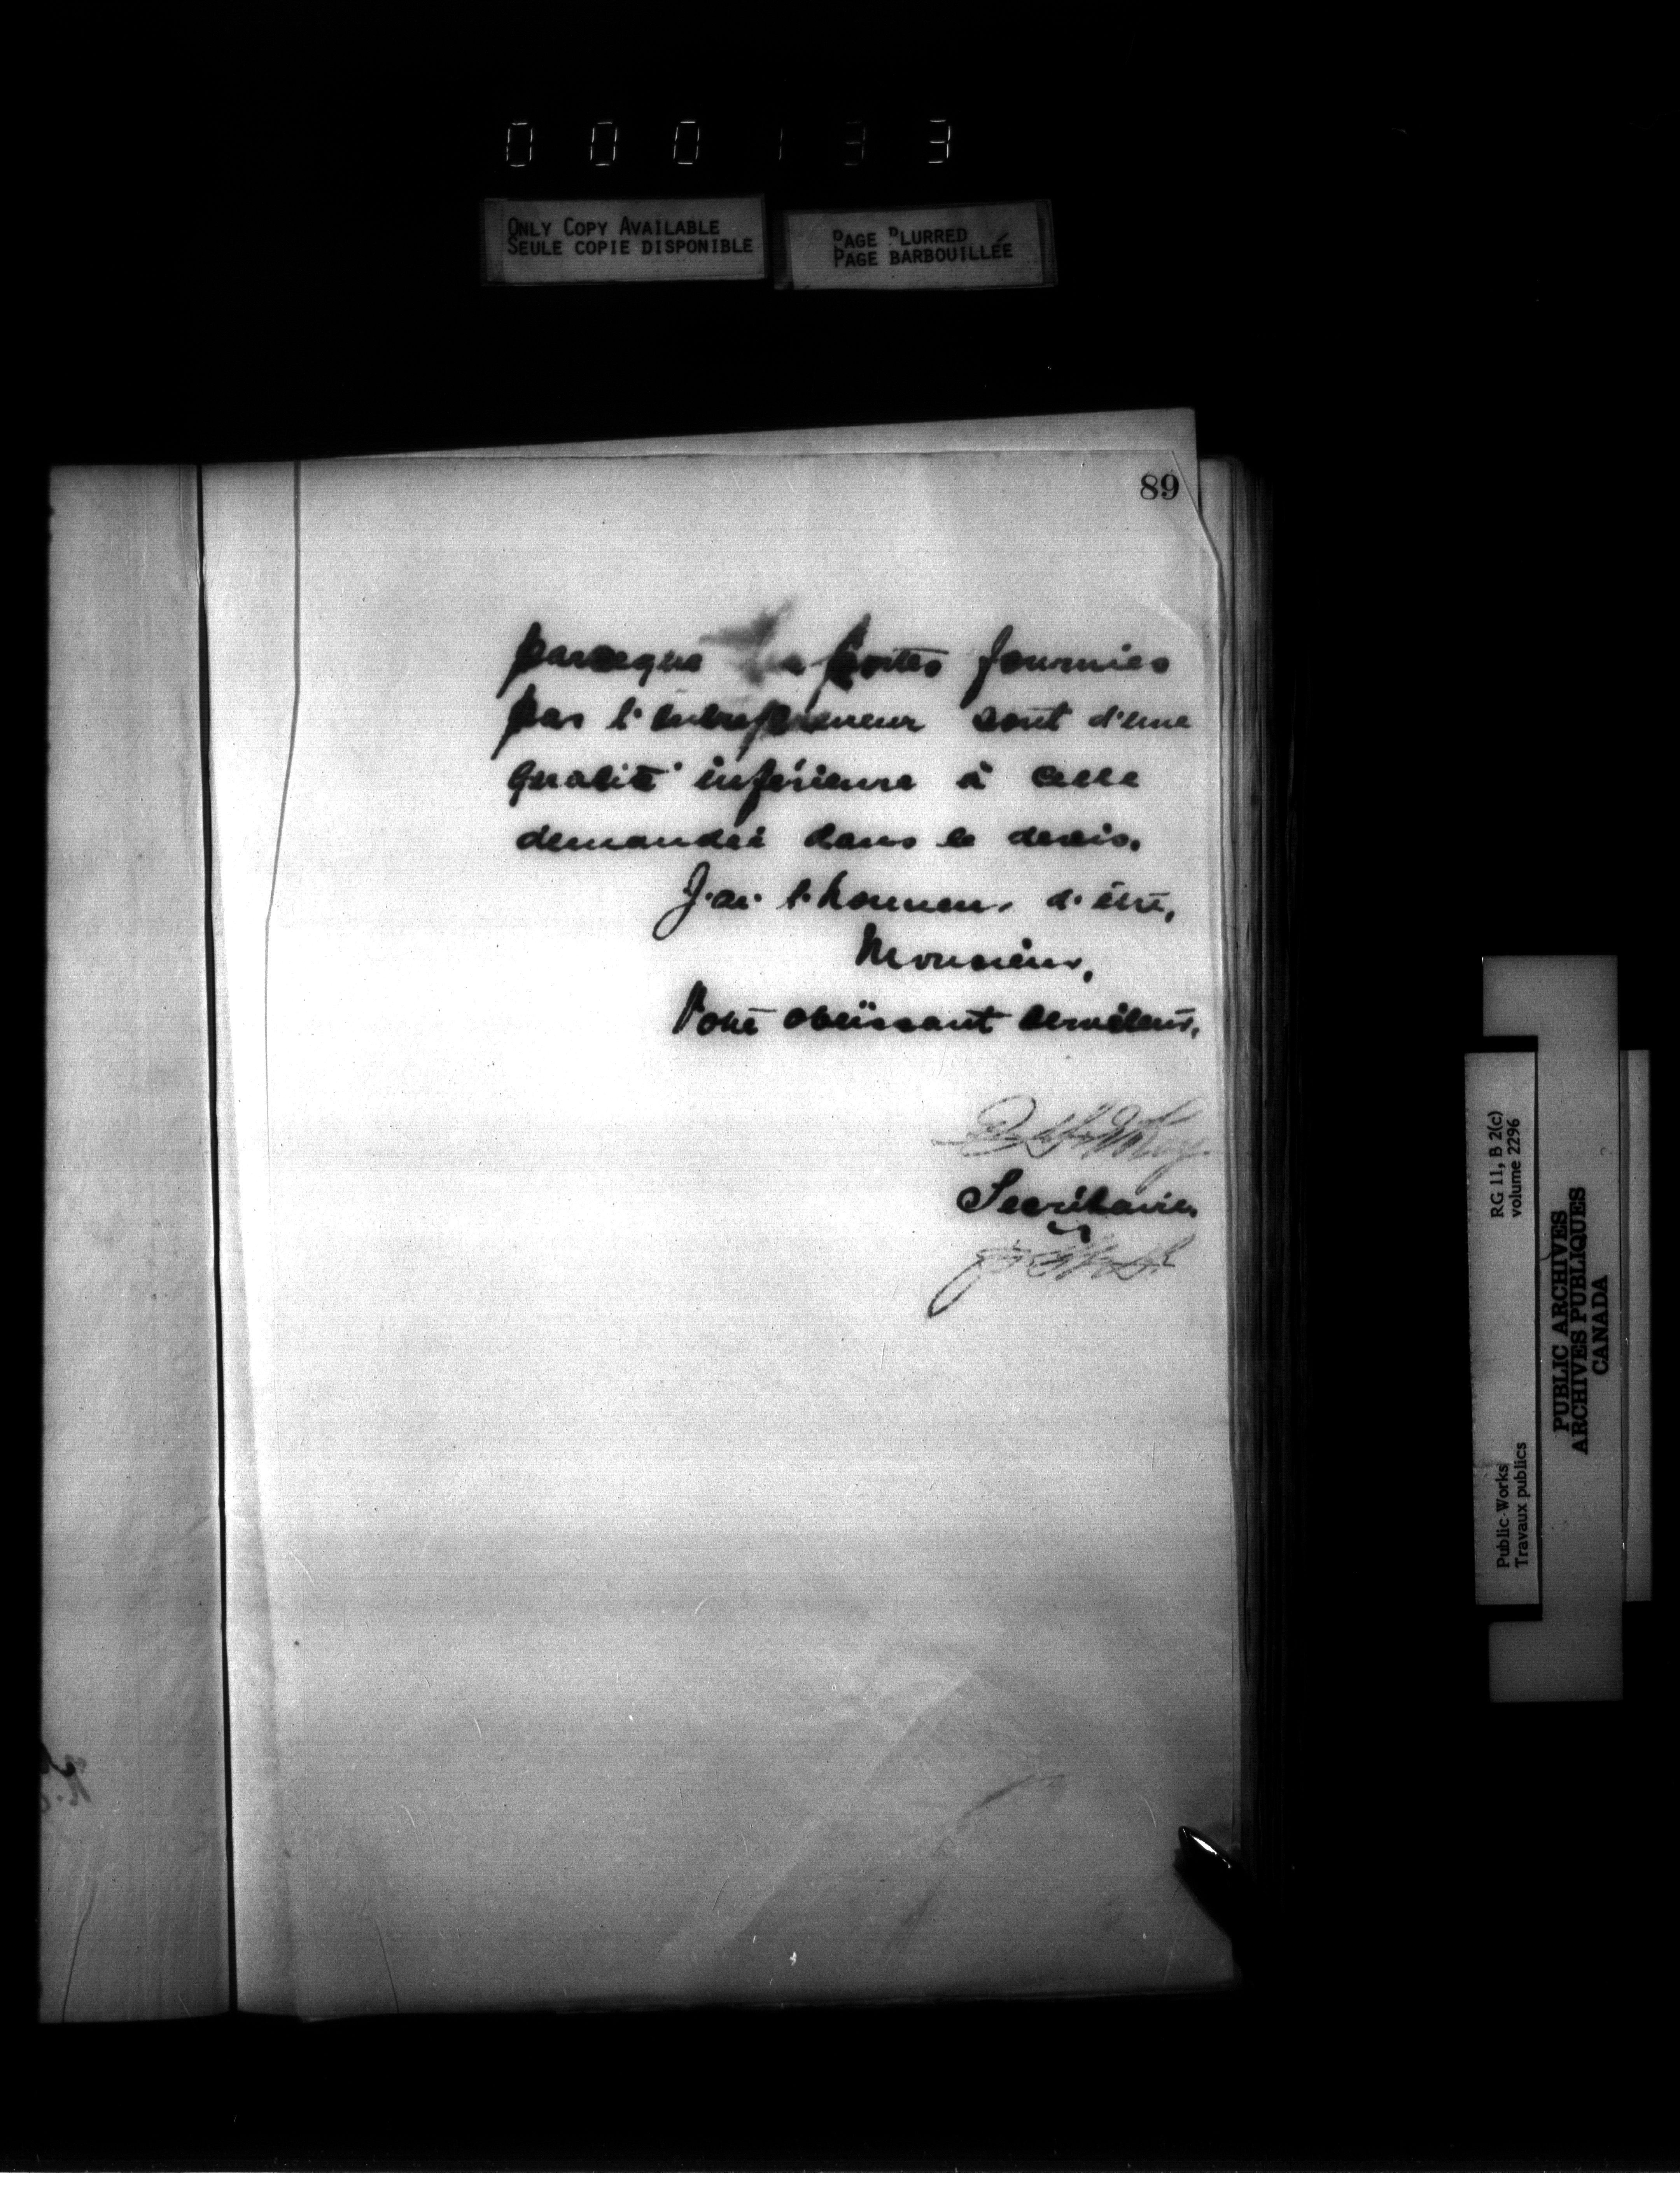 000133
ONLY COPY AVAILABLE
SEULE COPIE DISPONIBLE
PAGE BLURRED
PAGE BARBOUILLÉE
89
parceque portes fournies
par l'entrepreneur sont d'une
qualité inférieure à celle
demandée dans le devis.
J'ai l'honneur d'être,
Monsieur,
Votre obéissant serviteur,
Secrétaire.
RG 11, B 2(c)
volume 2296
Public Works
Travaux publics
PUBLIC ARCHIVES
ARCHIVES PUBLIQUES
CANADA